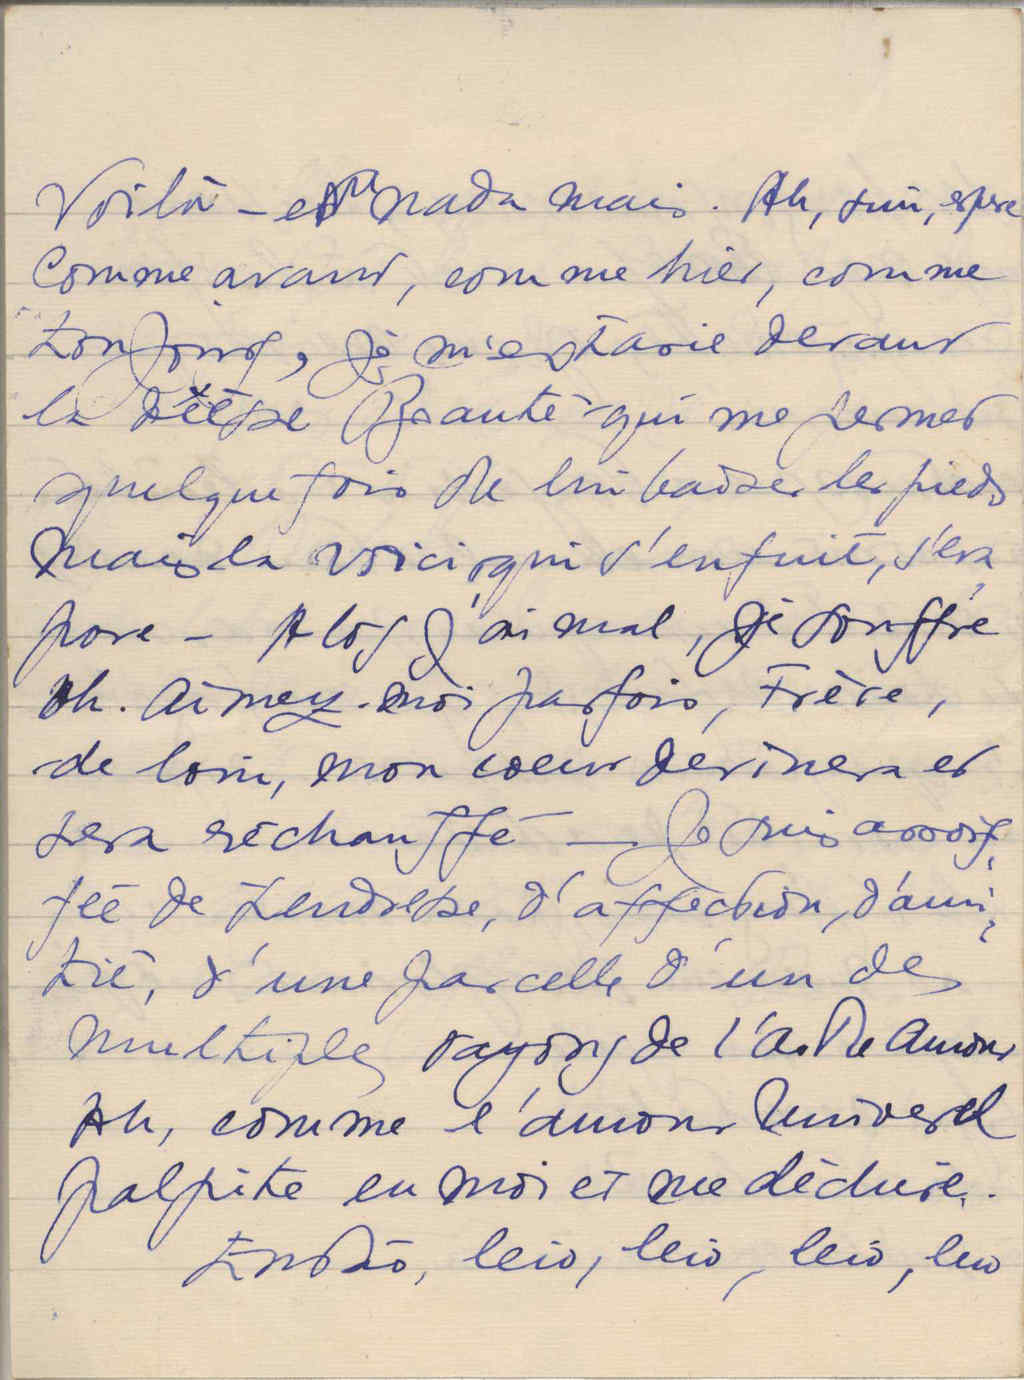 Voilà - e nada mais. Ah, sim, espere
Comme avant, comme hier, comme
toujours, je m'extasie devant
la déesse Beauté qui me permet
quelquefois de lui baiser les pieds
Mais la voici qui s'enfuit, s'éva
pore - Alors j'ai mal, je souffre
Ah. Aimez-moi parfois, Frère,
de loin, mon coeur devinera et
sera réchauffé - Je suis assoif
fée de tendresse, d'affection, d'ami
tié, d'une parcelle d'un des
multiples rayons de l'astre Amour
Ah, comme l'amour Universel
palpite en moi et me déchire.
Então, leio, leio, leio, leio